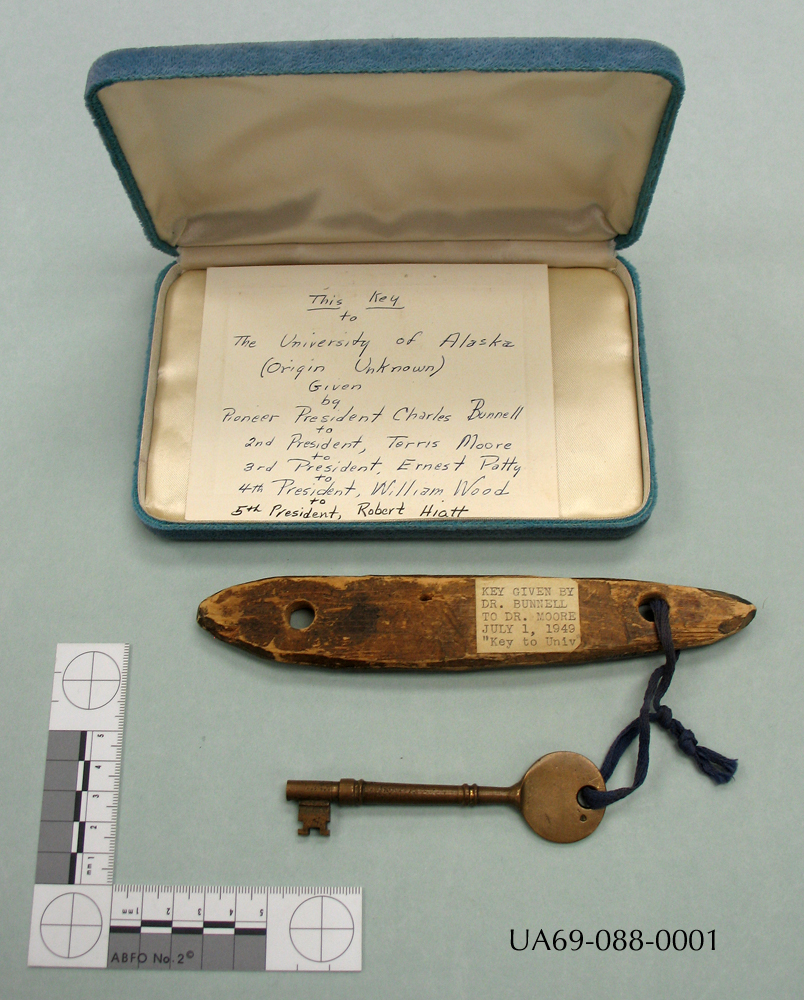 This Key
to
The University of Alaska
(Origin Unknown)
Given
by
Pioneer President Charles Bunnell
to
2nd President, Terris Moore
to
3rd President, Ernest Patty
to
4th President, William Wood
to
5th President, Robert Hiatt
KEY GIVEN BY
DR. BUNNELL
TO DR. MOORE
JULY 1, 1949
"Key to Univ
5
4
3
2
mm 1
1mm 2 3 4 5
ABFO No. 2©
UA69-088-0001